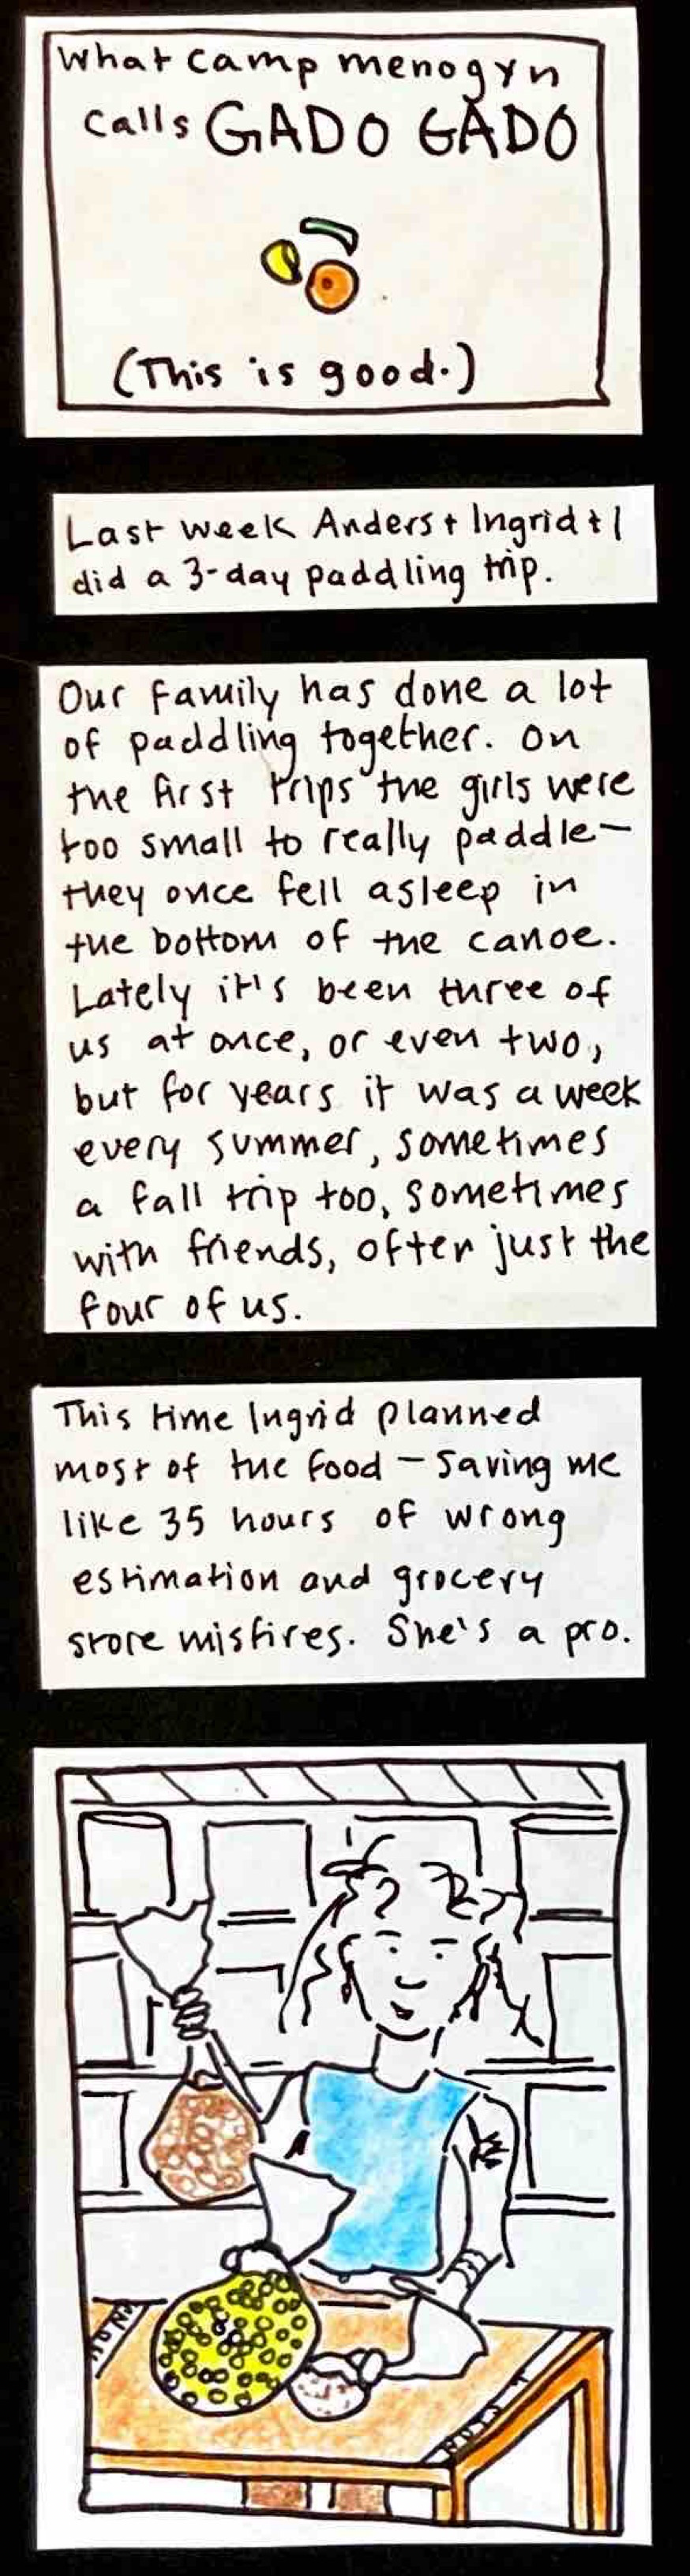 What camp menogyn
calls GADO GADO
(This is good.)
Last week Anders + Ingrid + I
did a 3-day paddling trip.
Our family has done a lot
of paddling together. On
the first trips the girls were
too small to really paddle—
they once fell asleep in
the bottom of the canoe.
Lately it's been three of
us at once, or even two,
but for years it was a week
every summer, sometimes
a fall trip too, sometimes
with friends, often just the
four of us.
This time Ingrid planned
most of the food – saving me
like 35 hours of wrong
estimation and grocery
store misfires. She's a pro.